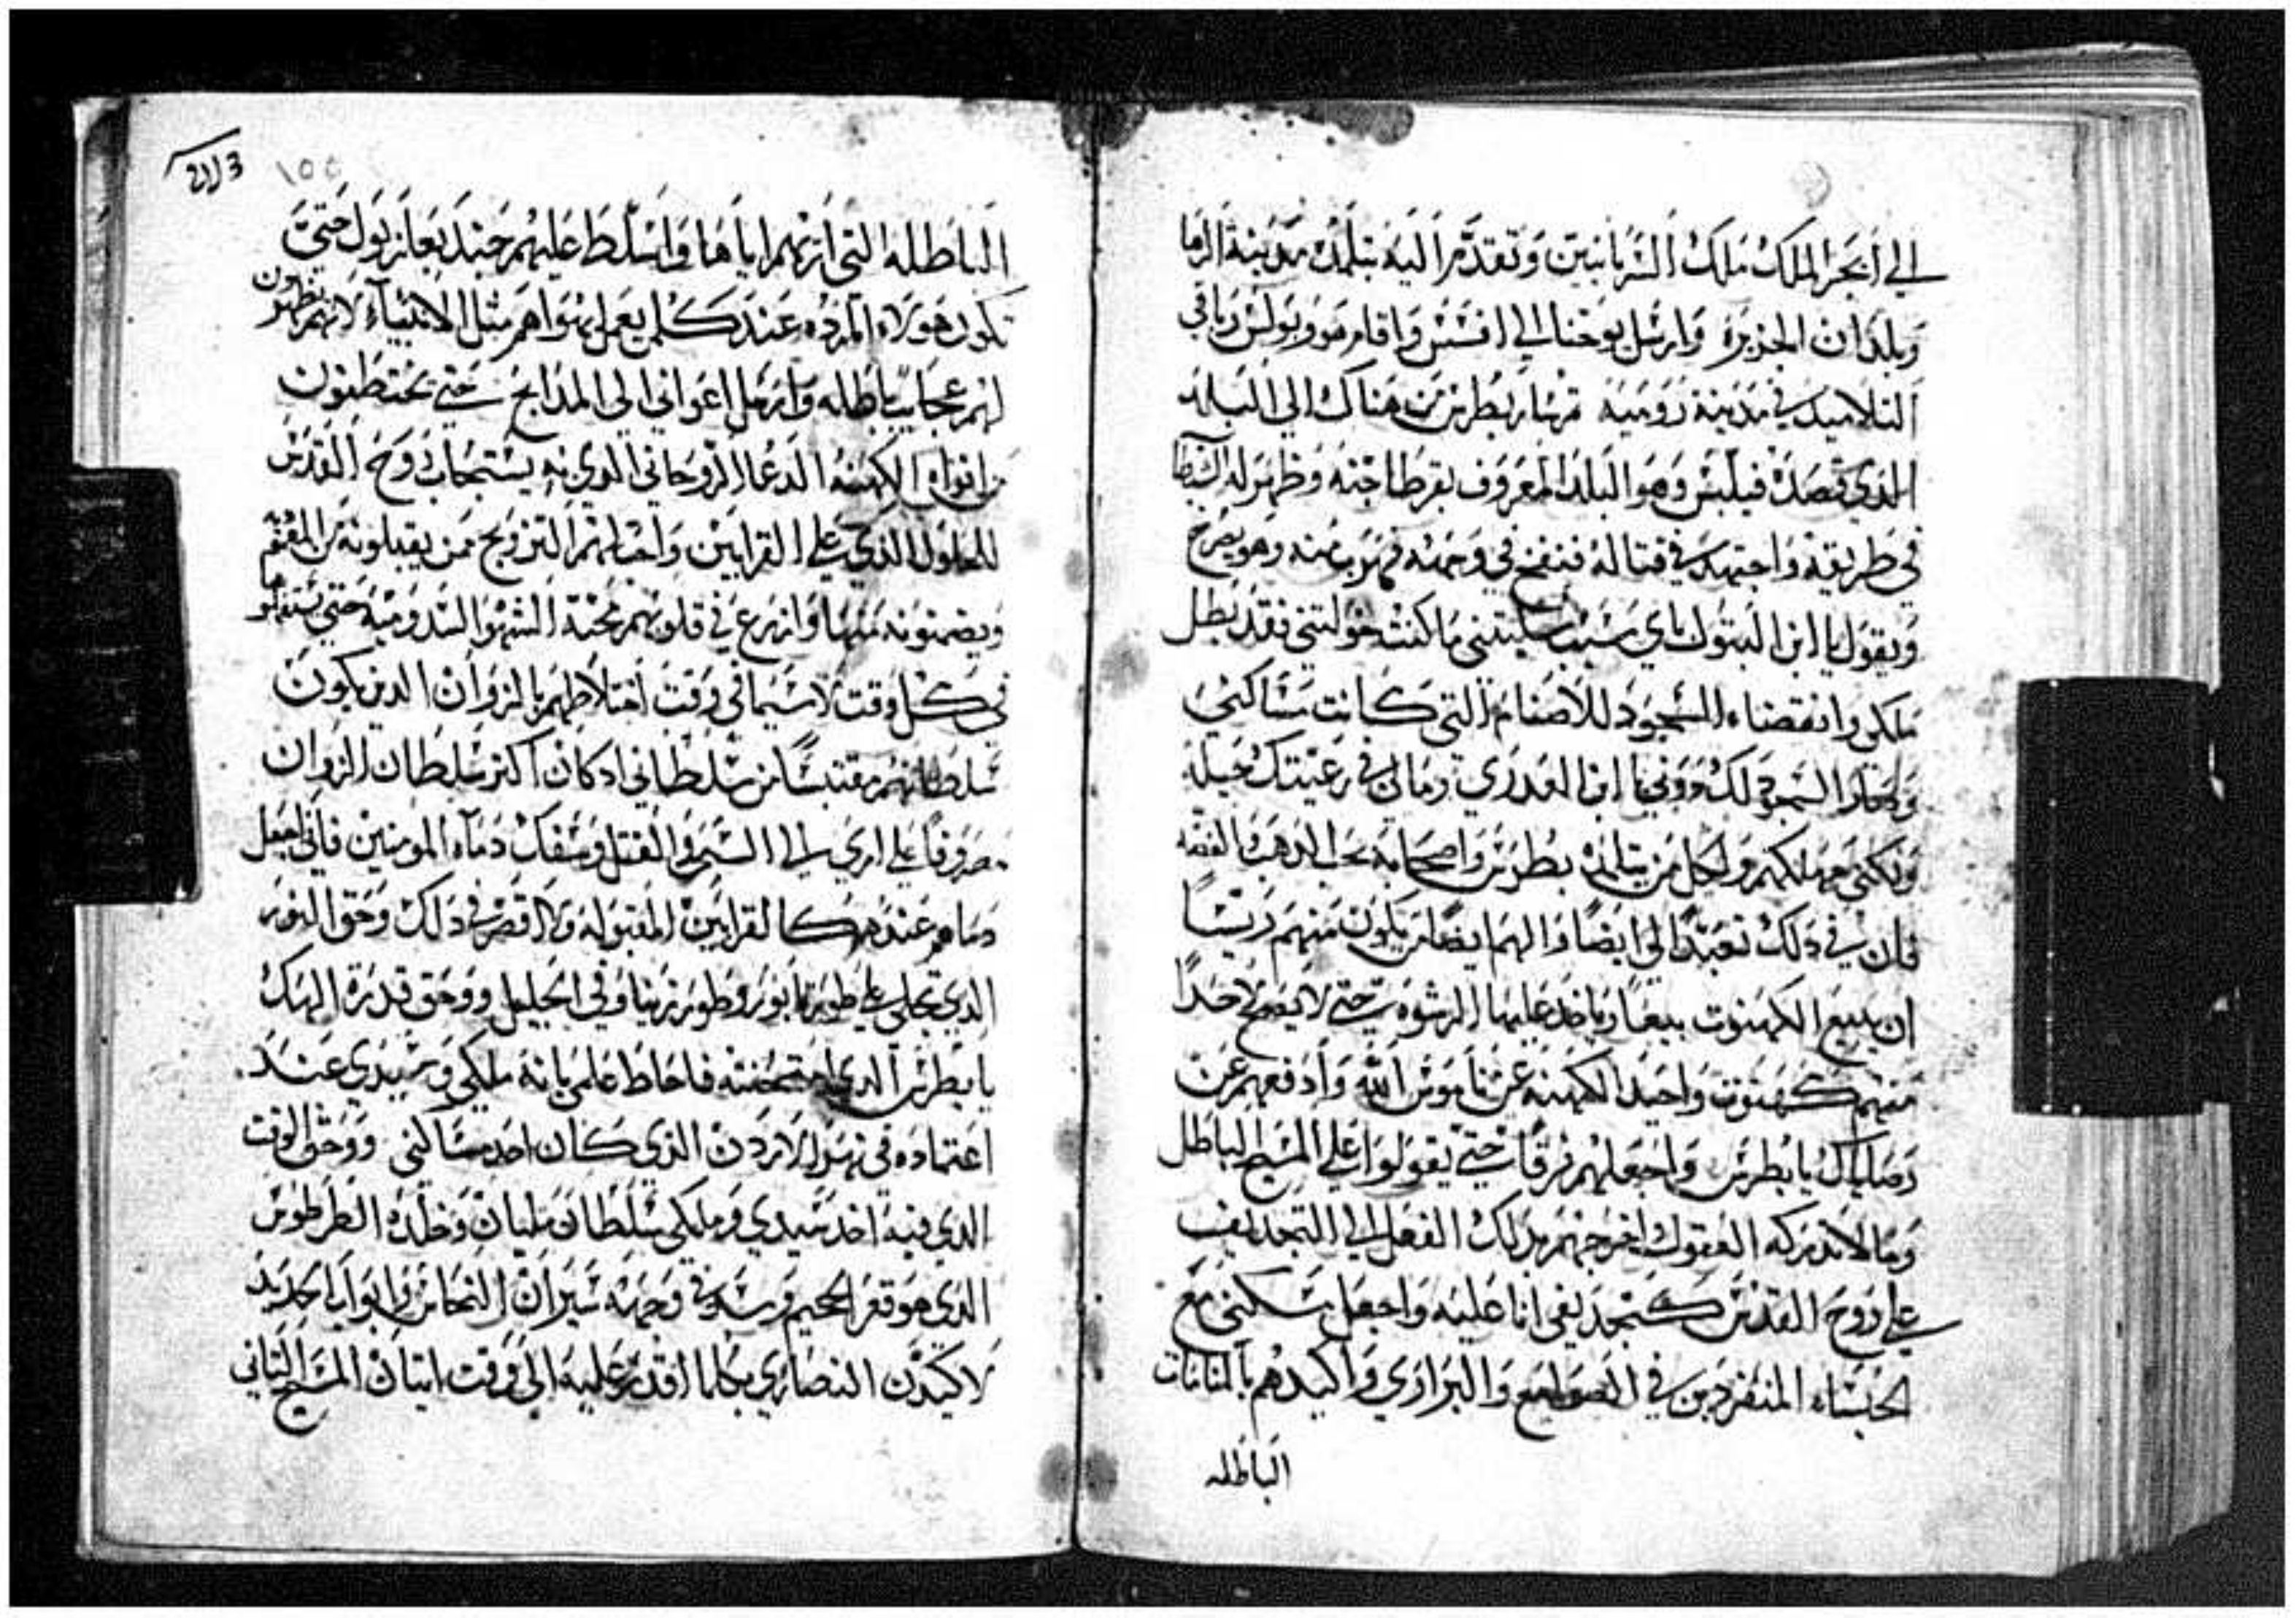 الي ابجر الملك ملك السريانيين وتقدم اليه بتلمذ مدينة الرها
وبلدان الجزيره وارسل يوحنا الي افسس واقام هو وبولس وباقي
التلاميد في مدينة روميه ثم سار بطرس من هناك الي البلد
الذي قصده فيلبس وهو البلد المعروف بقرطاجنه وظهر له الشيطان
في طريقه واجتهد في قتاله فنفخ في وجهه فهرب منه وهو يصرخ
ويقول يا ابن البتول باي سبب سلبتني ما كنت خولتني فقد بطل
ملكي وانقضاء السجود للاصنام التي كانت مساكني
السجود لك دوني يا ابن العدري ومالي في رعيتك حيله
ولكني مهلكهم ولكل من يتلمذ بطرس واصحابه بحب الدهب والفضه
فان في دلك تعبدا لي ايضا والهم ايضا من يكون منهم رييسا
ان يبيع الكهنوت بيعا وياخد عليها الرشوه حتي لا يصح لاحدا
منهم كهنوت واحيد الكهنه عن ناموس الله وادفعهم عن
وصاياك يا بطرس واجعلهم فرقا حتي يقولوا علي المسيح الباطل
وما لا تدركه العقول اخرجهم بدلك الفعل الي التجديف
علي روح القدس كتجديفي انا عليه واجعل مسكني مع
الحبساء المنفردين في الصوامع والبراري واكيدهم بالمنامات
الباطله
2113
١٥٥
الباطله التي اريهم اياها واسلط عليهم جند بعلزبول حتي
تكون هولاء المرده عند كلمن يعمل بهواهم مثل الانبياء لانهم يظهرون
لهم عجايب باطله وارسل اعواني الي المدابح حتي يختطفون
من افواه الكهنه الدعا الروحاني الدي به يستجاب روح القدس
للحلول الذي علي القرابين واحتالهم التزويج ممن يقبلونه
ويضمنونه منها وازرع في قلوبهم محبة الشهوا السدوميه حتي
في كل وقت لا سيما في وقت اختلاطهم بالزوان الدين يكون
سلطانهم مقتبسا من سلطاني اد كان اكتر سلطان الزوان
مصروفا علي اري الي السر والقتل وسفك دماء المومنين فاني اجعل
دماهم عندهم كالقرابين المقبوله ولا اقصر في دلك وحق النور
الدي تجلي علي طور تابور وطور زيتا وفي الجليل ووحق قدرة الهك
يا بطرس الدي امتحنته فاحاط علمي بانه ملكي وسيدي عند
اعتماده في نهر الاردن الذي كان احد مساكني ووحق الوقت
الدي فيه اخد سيدي وملكي سلطان مليان وخلده الطرطوس
الدي هو قعر الجحيم وسد في وجهه سيران النحاس وابواب الحديد
لاكيدن النصاري بكلما اقدر عليه الي وقت اتيان المسيح التاني